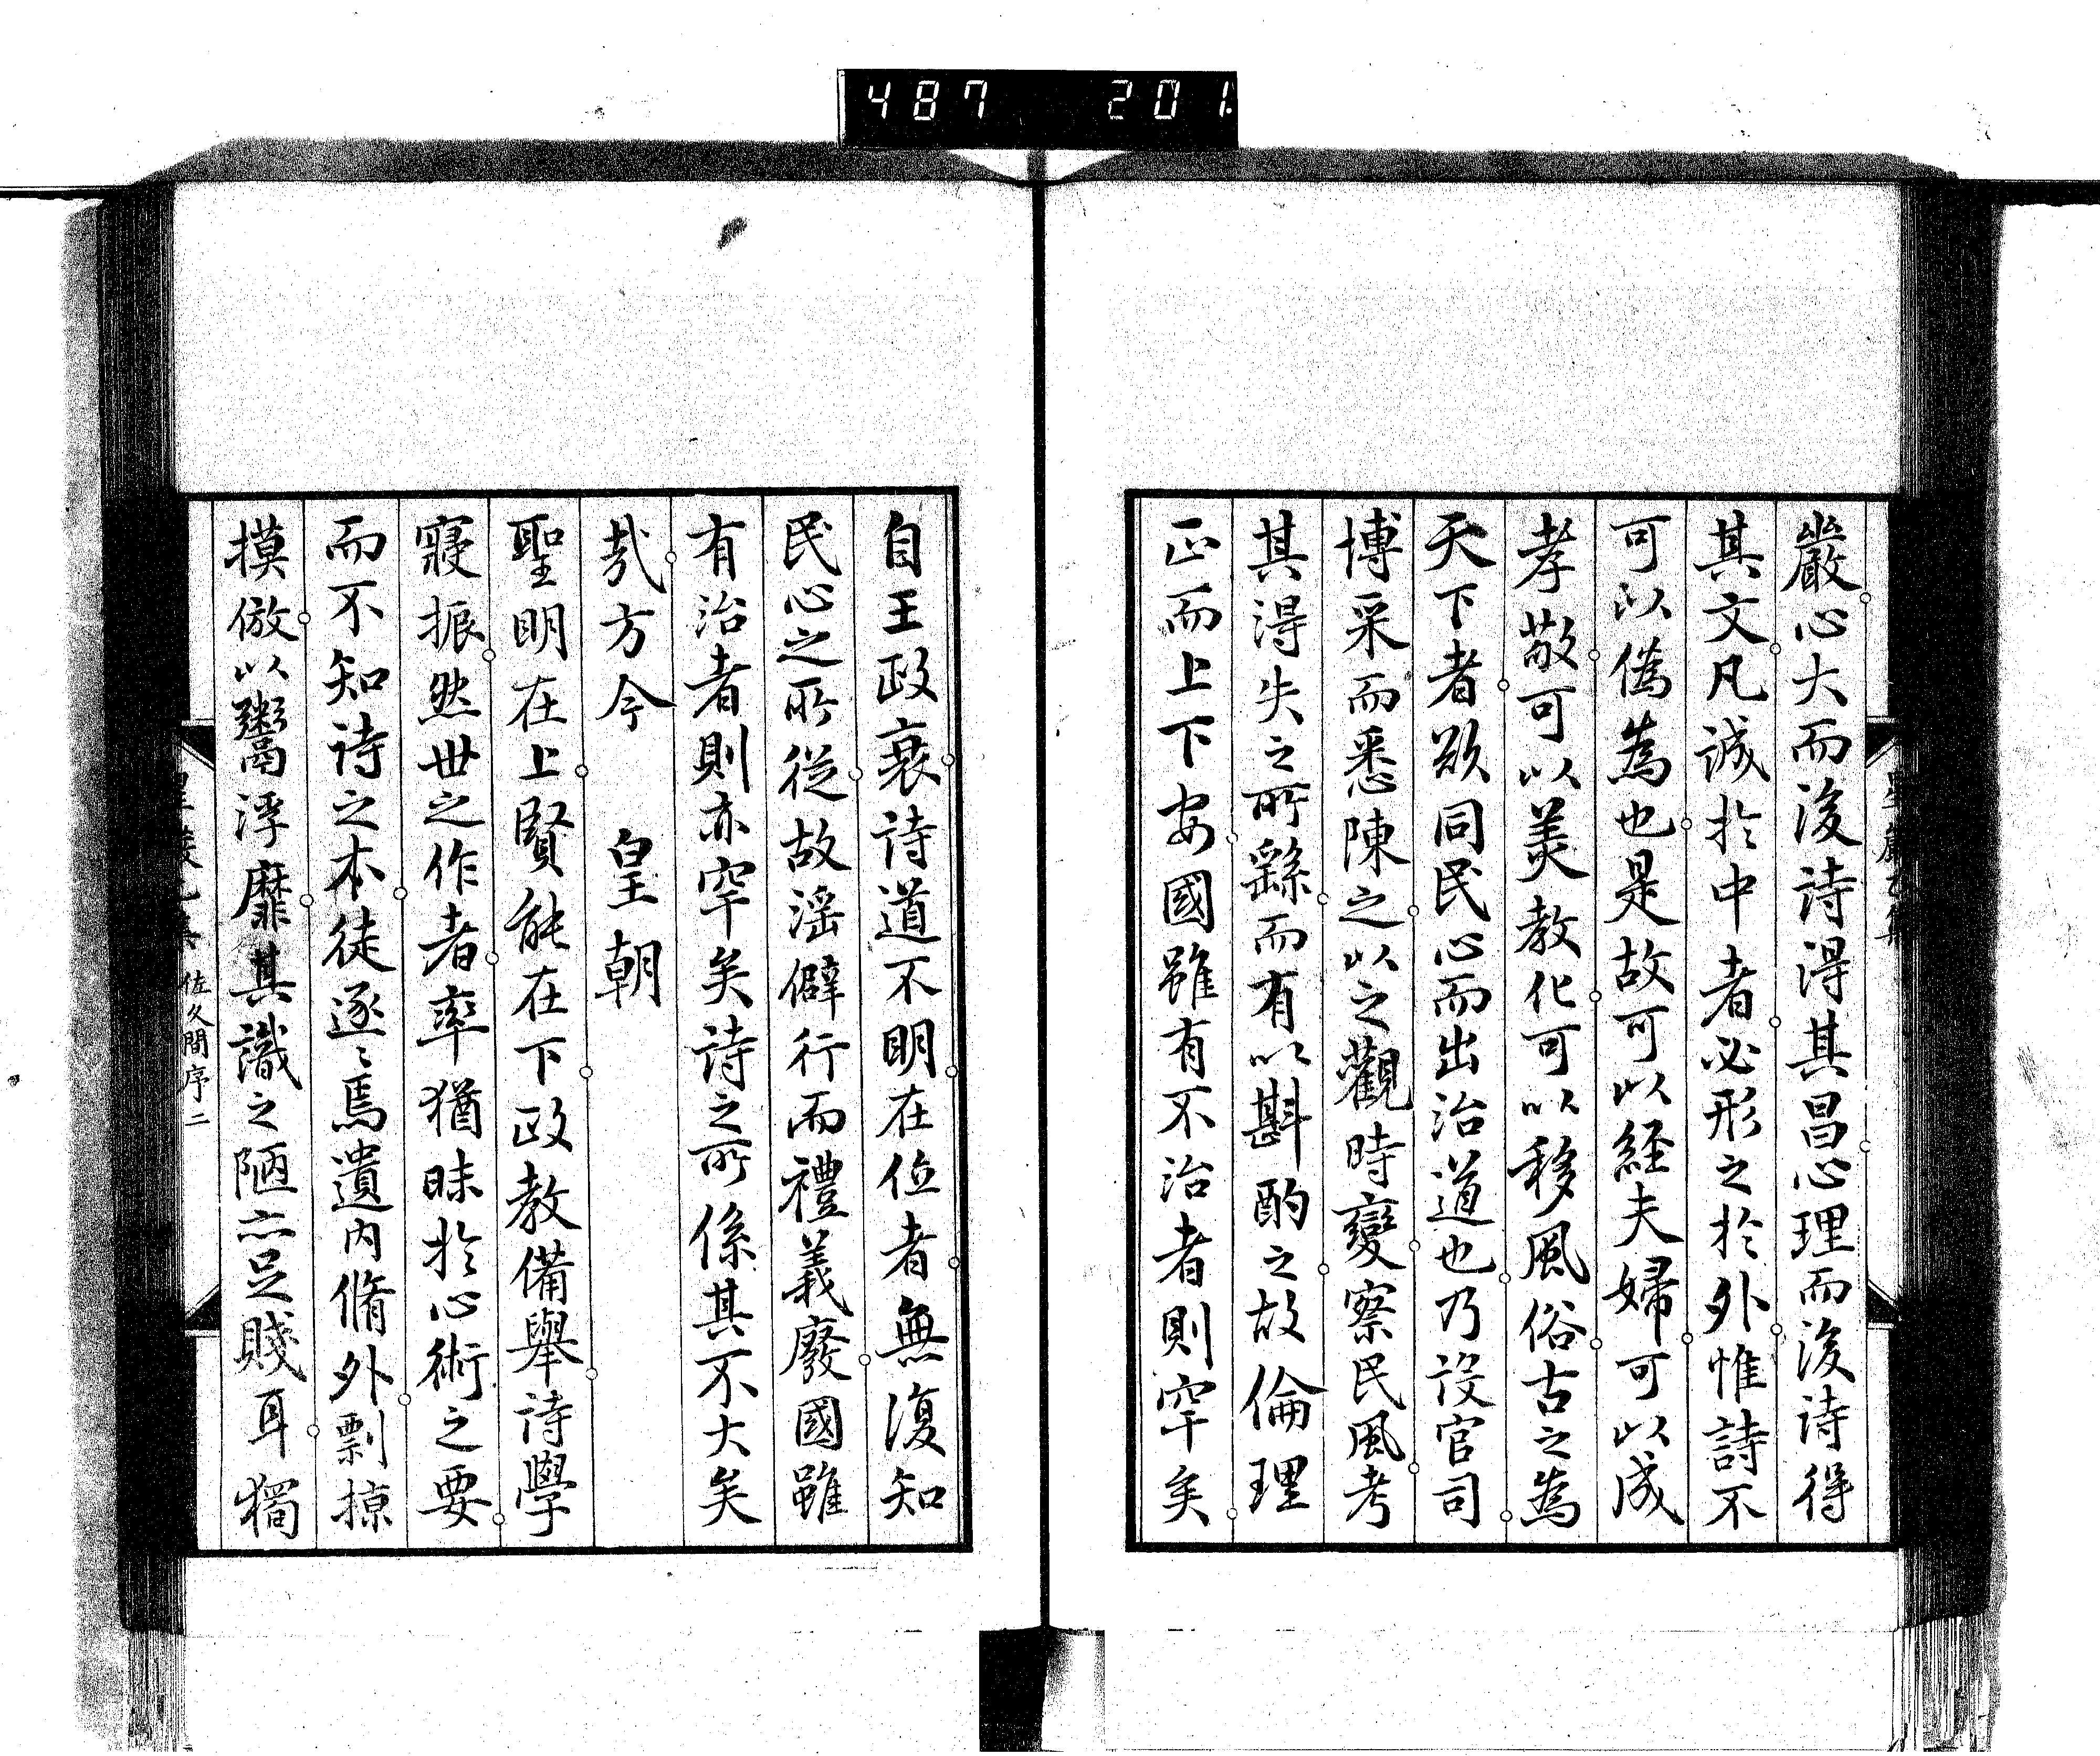 487 201
嚴心大而後詩得其昌心理而後詩得
其文凡誠於中者必形之於外惟詩不
可以偽為也是故可以経夫婦可以成
孝敬可以美教化可以移風俗古之為
天下者欲同民心而出治道也乃設官司
博采而悉陳之以之觀時變察民風考
其得失之所繇而有以斟酌之故倫理
正而上下安國雖有不治者則罕矣
自王政衰詩道不明在位者無復知
民心之所從故滛僻行而禮義廢國雖
有治者則亦罕矣詩之所係其不大矣
哉方今　皇朝
聖明在上賢能在下政教備舉詩學
寖振然世之作者率猶昧於心術之要
而不知詩之本徒逐〻焉遺内脩外剽掠
摸倣以鬻浮靡其識之陋亦足賤耳獨
佐久間序 二